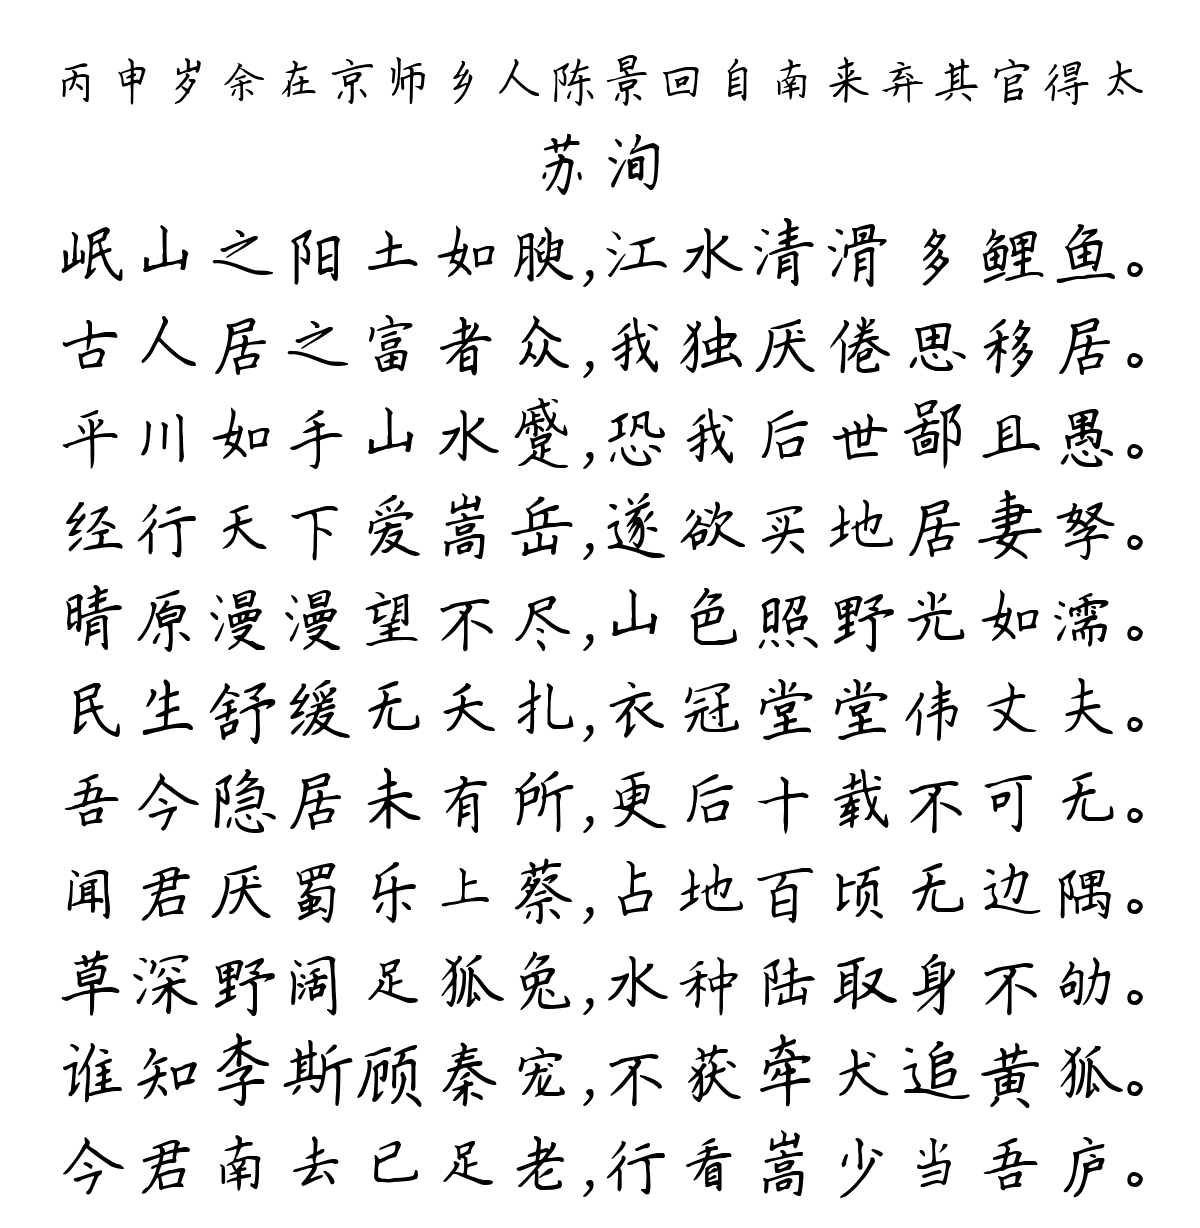 丙申岁余在京师乡人陈景回自南来弃其官得太
苏洵
岷山之阳土如腴,江水清滑多鲤鱼。
古人居之富者众,我独厌倦思移居。
平川如手山水蹙,恐我后世鄙且愚。
经行天下爱嵩岳,遂欲买地居妻孥。
晴原漫漫望不尽,山色照野光如濡。
民生舒缓无夭扎,衣冠堂堂伟丈夫。
吾今隐居未有所,更后十载不可无。
闻君厌蜀乐上蔡,占地百顷无边隅。
草深野阔足狐兔,水种陆取身不劬。
谁知李斯顾秦宠,不获牵犬追黄狐。
今君南去已足老,行看嵩少当吾庐。